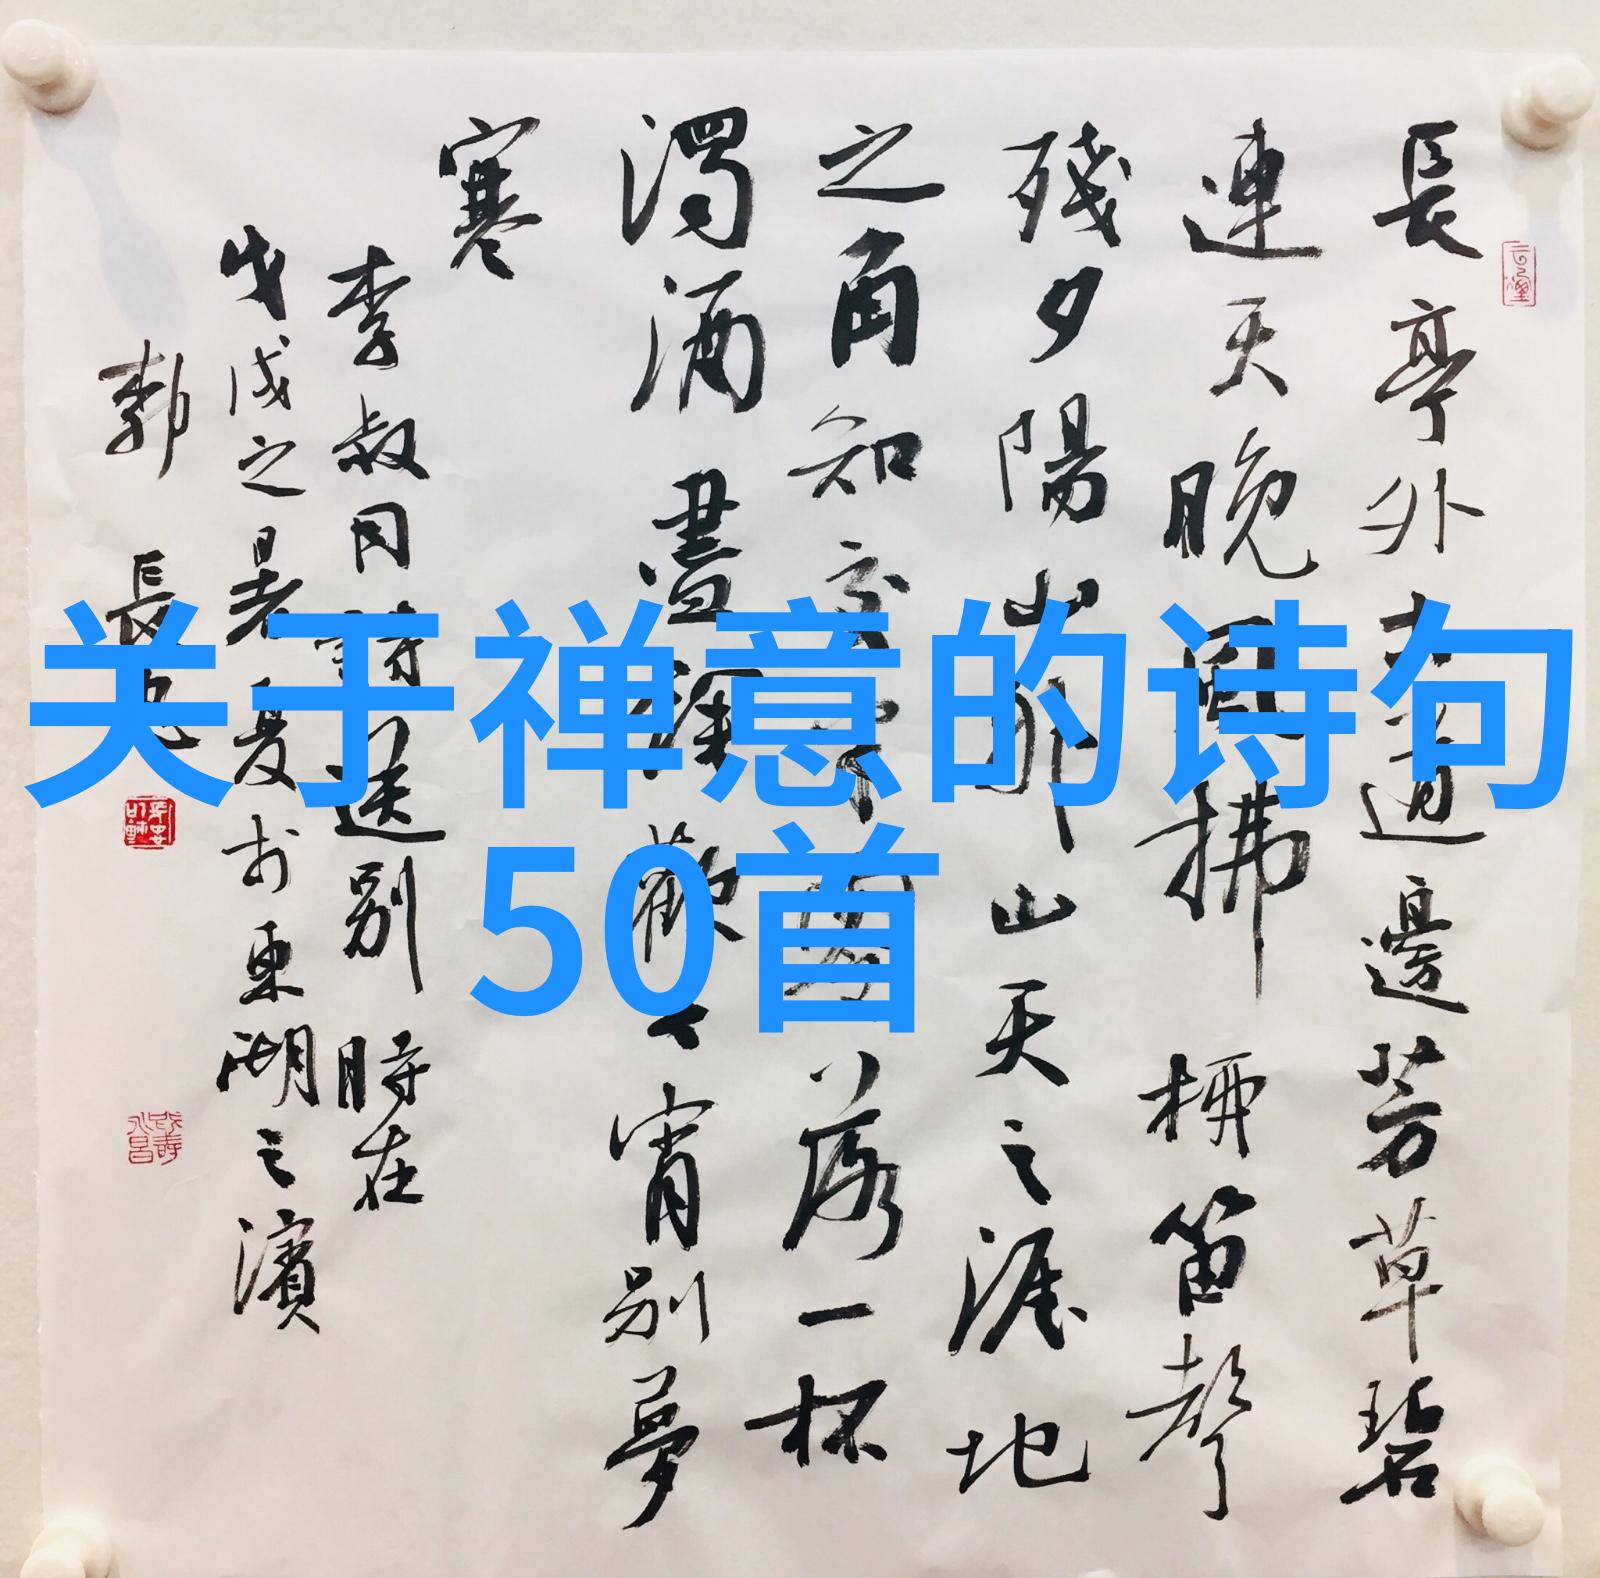 关于禅意的诗句
50首
長亭外古道邊芳草碧
連天晚風拂柳笛聲
殘夕陽山外山天之涯地
之角知交半零落一杯
濁酒盡歡今宵別夢
寒
李叔同詩送別 時在
戊戌之暑夏於東湖之濱
郭長